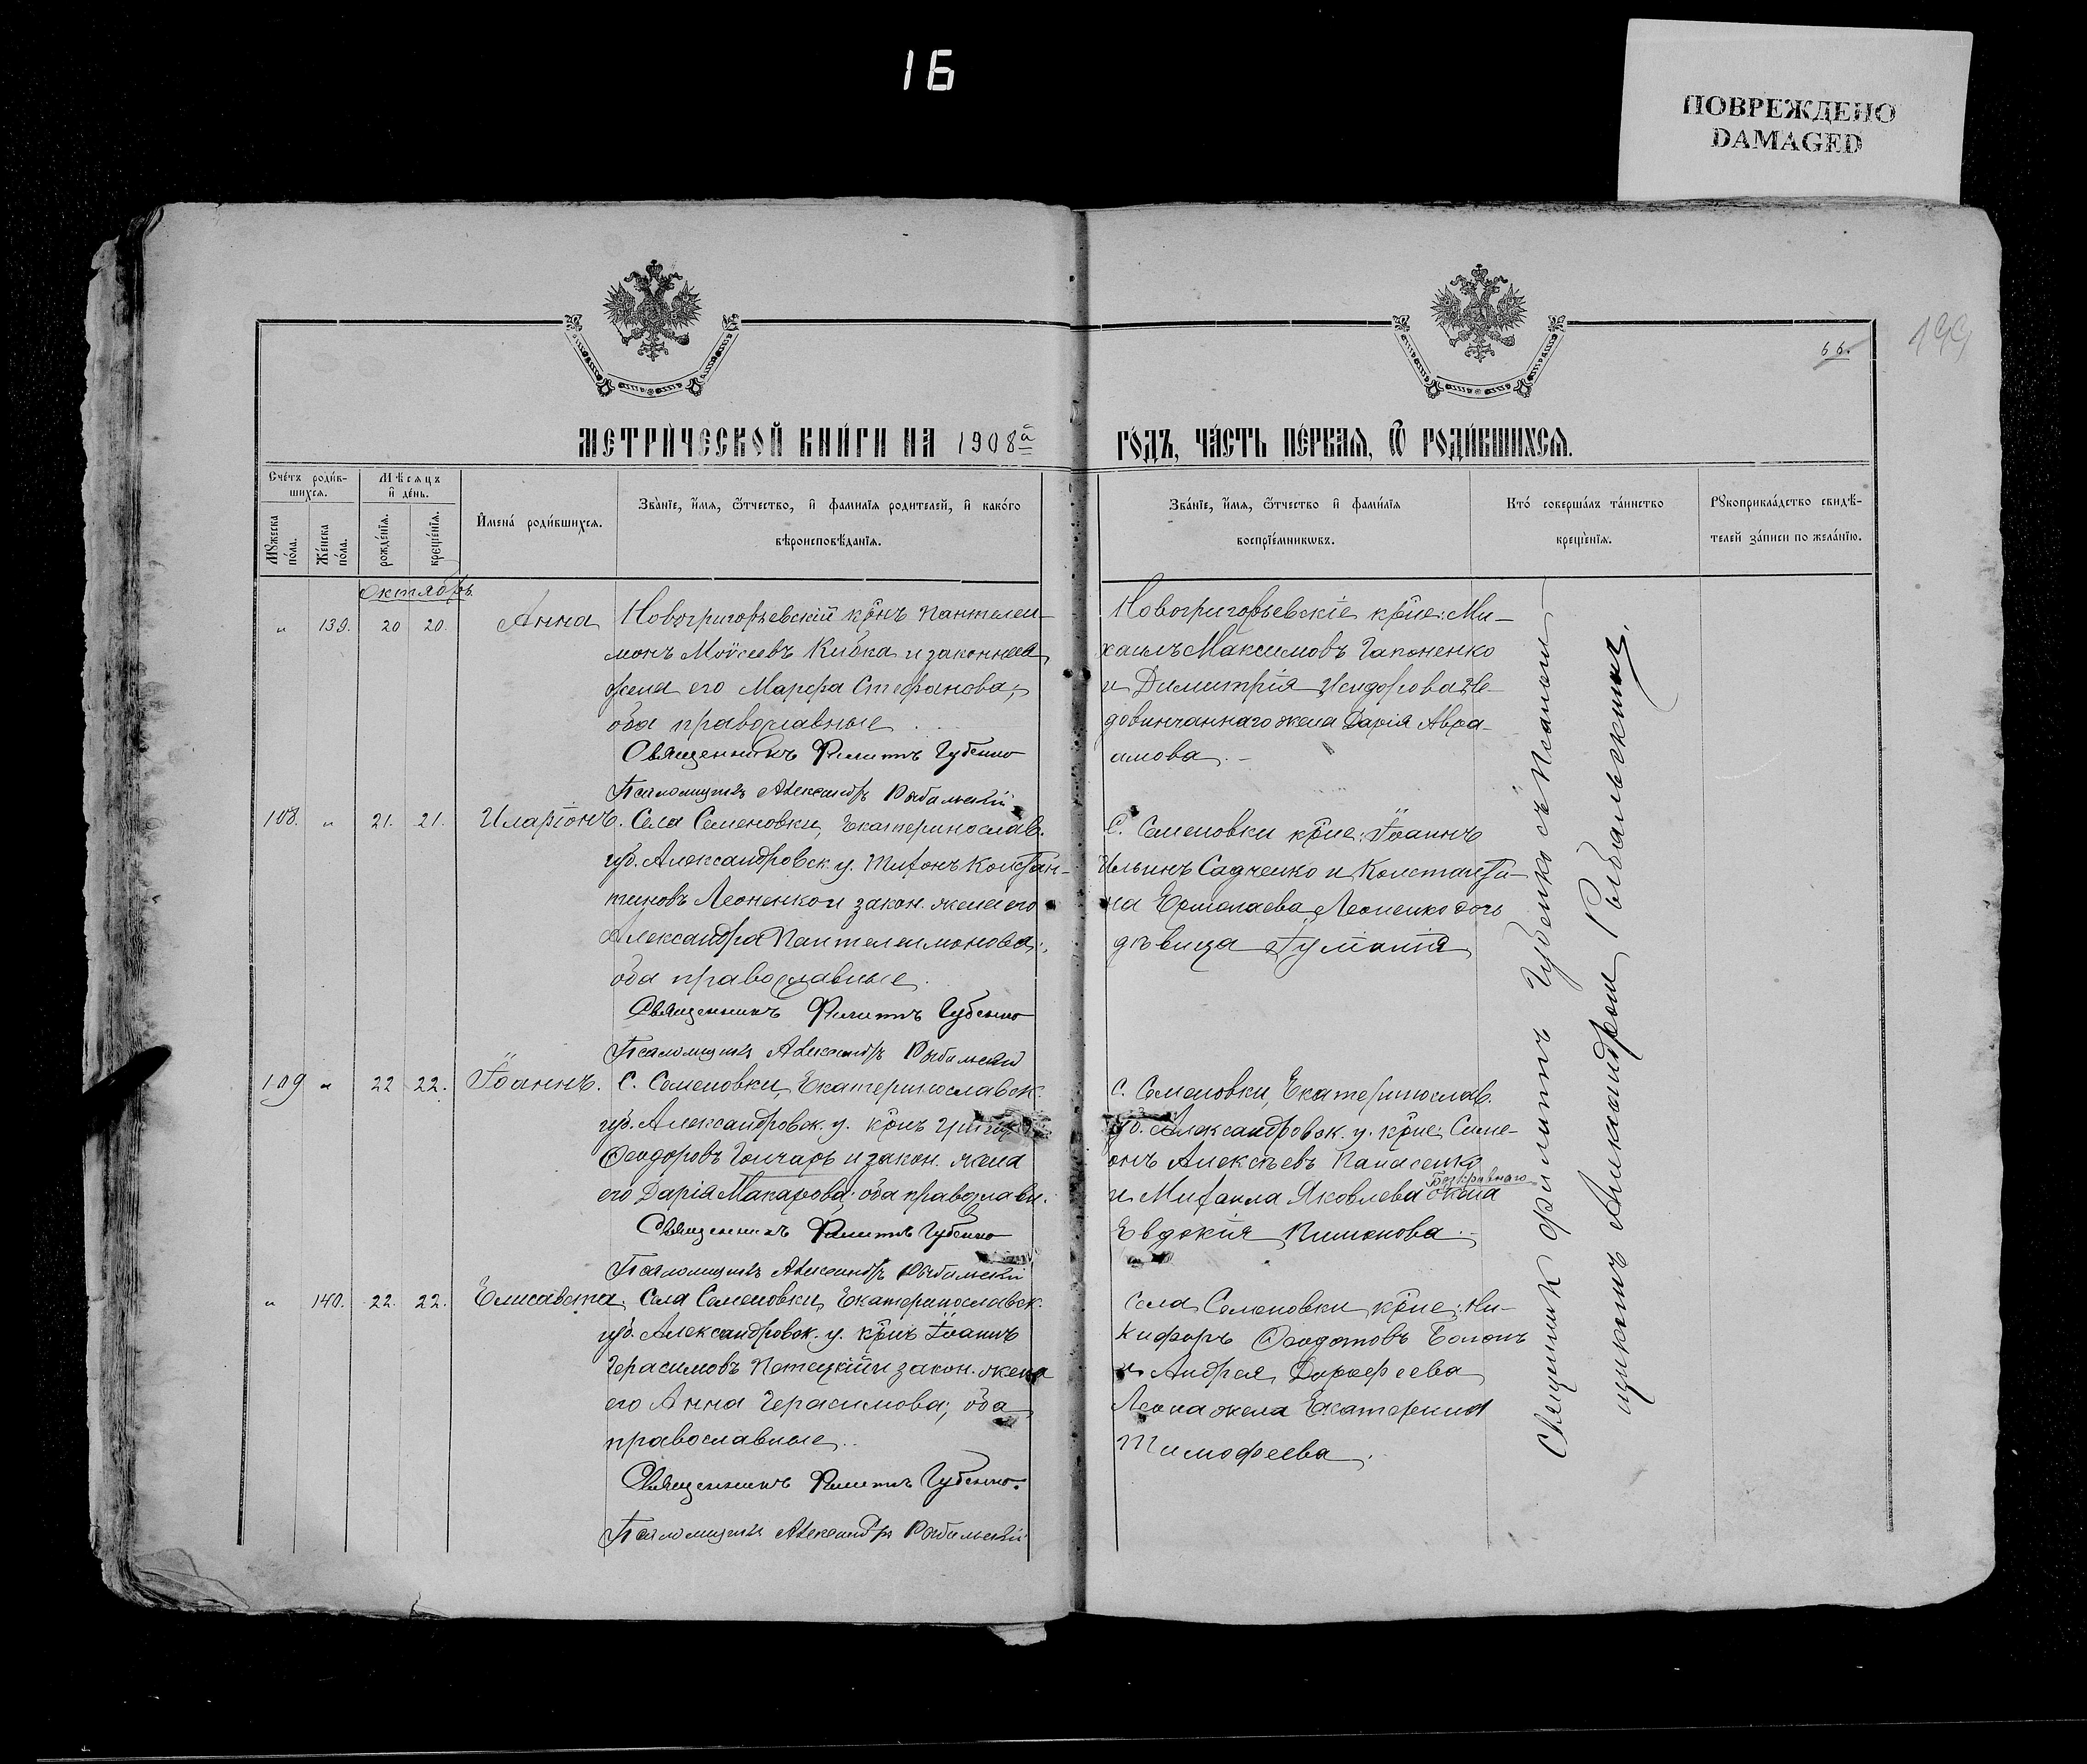 16
ПОВРЕЖДЕНО
DAMAGED
199
66.
МЕТРИ́ЧЕСКОЙ КНИ́ГИ НА 1908й
ГО́ДЪ, ЧА́СТЬ ПЕ́РВАѦ, Ѿ РОДИ́ВШИХСѦ.
Сче́тъ роди́в-
шихсѧ.
Мꙋ́жеска по́ла.
Же́нска по́ла.
Мѣ́сѧцъ
и҆ де́нь.
рожде́нїѧ.
креще́нїѧ.
И҆мена̀ роди́вшихсѧ.
Зва́нїе, и҆́мѧ, ѻ҆́тчество, и҆ фамилїѧ родителей, и҆ како́гѡ
вѣроисповѣ́данїѧ.
Зва́нїе, и҆́мѧ, ѻ҆́тчество и҆ фами́лїѧ
воспрїе́мникѡвъ.
Кто́ соверша́лъ та́инство
креще́нїѧ.
Рꙋкоприкла́дство свидѣ́-
телей за́писи по жела́нїю.
Октябрь
" 139. 20 20. Анна Новогригорьевскій крнъ Пантелеи-
монъ Моѵсеевъ Кибка и законная
жена его Марѳа Стефанова;
оба православные
Священникъ Филиппъ Губенко
Псаломщикъ Александръ Рыбальскій
Новогригорьевскіе крне: Ми-
хаилъ Максимовъ Гапоненко
и Димитрія Исидорова Не-
довинчаннаго жена Дарія Авра-
амова.
108. " 21. 21. Иларіонъ. Села Семеновки, Екатеринослав.
губ. Александровск. у. Тихонъ Констан-
тиновъ Леоненко и закон. жена его
Александра Пантелеимонова;
оба православные.
Священникъ Филиппъ Губенко
Псаломщикъ Александръ Рыбальскій
С. Семеновки крне: Іоаннъ
Ильинъ Садченко и Константи-
на Ермолаева Леоненко дочь
дѣвица Іуліанія
109 " 22 22. Іоаннъ. С. Семеновки, Екатеринославск.
губ. Александровск. у. крнъ
Ѳеодоровъ Гончаръ и закон. жена
его Дарія Макарова; оба православн.
Священникъ Филиппъ Губенко
Псаломщикъ Александръ Рыбальскій
С. Семеновки, Екатеринослав.
губ. Александровск. у. крне: Симе-
онъ Алексѣевъ Панасенко
и Михаила Яковлева жена
Евдокія Пименова.
" 140. 22. 22. Елисавета. Села Семеновки, Екатеринославск.
губ. Александровск. у. крнъ Іоаннъ
Герасимовъ и закон. жена
его Анна Герасимова; оба
православные.
Священникъ Филиппъ Губенко.
Псаломщикъ Александръ Рыбальскій
Села Семеновки крне: Ни-
кифоръ Ѳеодотовъ
и Андрея Дорофеева
жена Екатерина
Тимофеева.
Священник Филиппъ Губенко съ Псалом-
щикомъ Александром Рыбальским.